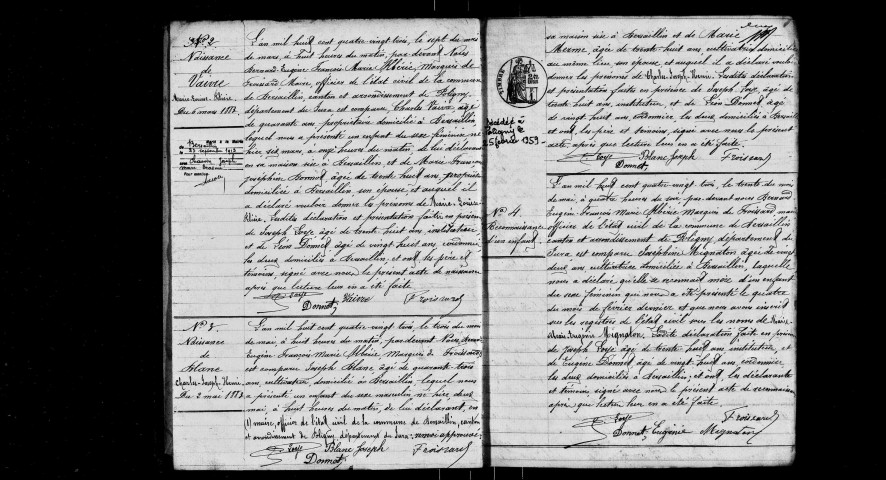 N° 2
Naissance
de
Vaivre
Marie-Louise-Aline
Du 6 mars 1883
L'an mil huit cent quatre vingt trois, le sept du mois
de mars, à huit heures du matin, par devant Nous
Bernard Eugène François Marie Albéric, Marquis de
Froissard, Maire, officier de l'état civil de la commune
de Bersaillin, canton et arrondissement de Poligny,
département du Jura est comparu, Charles Vaivre, âgé
de quarante ans, propriétaire domicilié à Bersaillin,
lequel nous a présenté un enfant du sexe féminin né
hier six mars, à onze heures du matin, de lui déclarant
en sa maison sise à Bersaillin et de Marie
Joséphine Bonnet, âgée de trente huit ans,
domiciliée à Bersaillin, son épouse et auquel il
a déclaré vouloir donner les prénoms de Marie-Louise-
Aline, Lesdites déclaration et présentation faites en présence
de Joseph Foye âgé de trente huit ans, instituteur,
et de Léon Donnet, âgé de vingt huit ans, cordonnier
les deux domiciliés à Bersaillin; et ont, les père et
témoins, signé avec nous le présent acte de naissance
après que lecture leur en a été faite.
Foye Vaivre Froissard
Donnet
N° 3
Naissance
de
Blanc
Charles-Joseph-Kermin
Du 2 mai 1883
L'an mil huit cent quatre-vingt trois, le trois du mois
de mai, à huit heures du matin, par devant Nous Bernard
Eugène François Marie Albéric Marquis de Froissard
est comparu Joseph Blanc, âgé de quarante trois
ans, cultivateur, domicilié à Bersaillin, lequel nous
a présenté un enfant du sexe masculin né hier deux
mai, à huit heures du matin, de lui déclarant, en
(1) maire, officier de l'état civil de la commune de Bersaillin, canton
et arrondissement de Poligny, département du Jura, renvoi approuvé.
Foye Blanc Joseph Froissard
Donnet
sa maison sise à Bersaillin et de Marie
Merme, âgée de trente-huit ans, cultivatrice, domiciliée
au même lieu, son épouse, et auquel il a déclaré vouloir
donner les prénoms de Charles-Joseph-Kermin. Lesdites déclaration
et présentation faites en présence de Joseph Foye, âgé de
trente huit ans, instituteur, et de Léon Donnet, âgé
de vingt huit ans, cordonnier, les deux domiciliés à Bersaillin
et ont, les père et témoins, signé avec nous le présent
acte, après que lecture leur en a été faite.
Foye Blanc Joseph Froissard
Donnet
Décédé à
Poligny le
5 février 1959
N° 4.
Reconnaissance
d'un enfant
L'an mil huit cent quatre vingt trois, le trente du mois
de mai, à quatre heures du soir, par devant nous Bernard
Eugène François Marie Albéric Marquis de Froissard maire
officier de l'état civil de la commune de Bersaillin
canton et arrondissement de Poligny, département du
Jura est comparu Joséphine Mignaton âgée de vingt
deux ans, cultivatrice domiciliée à Bersaillin, laquelle
nous a déclaré qu'elle se reconnaît mère d'un enfant
du sexe féminin qui nous a été présenté le quatre
du mois de février dernier et que nous avons inscrit
sur les registres de l'état civil sous les noms de
Marie Eugénie Mignaton. Ladite déclaration faite en présence
de Joseph Foye âgé de trente huit ans, instituteur, et
de Eugène Donnet âgé de vingt huit ans, cordonnier,
les deux domiciliés à Bersaillin; et ont, la déclarante
et témoins signé avec nous le présent acte de reconnaissance
après que lecture leur en a été faite.
Foye Froissard
Donnet Eugénie Mignaton